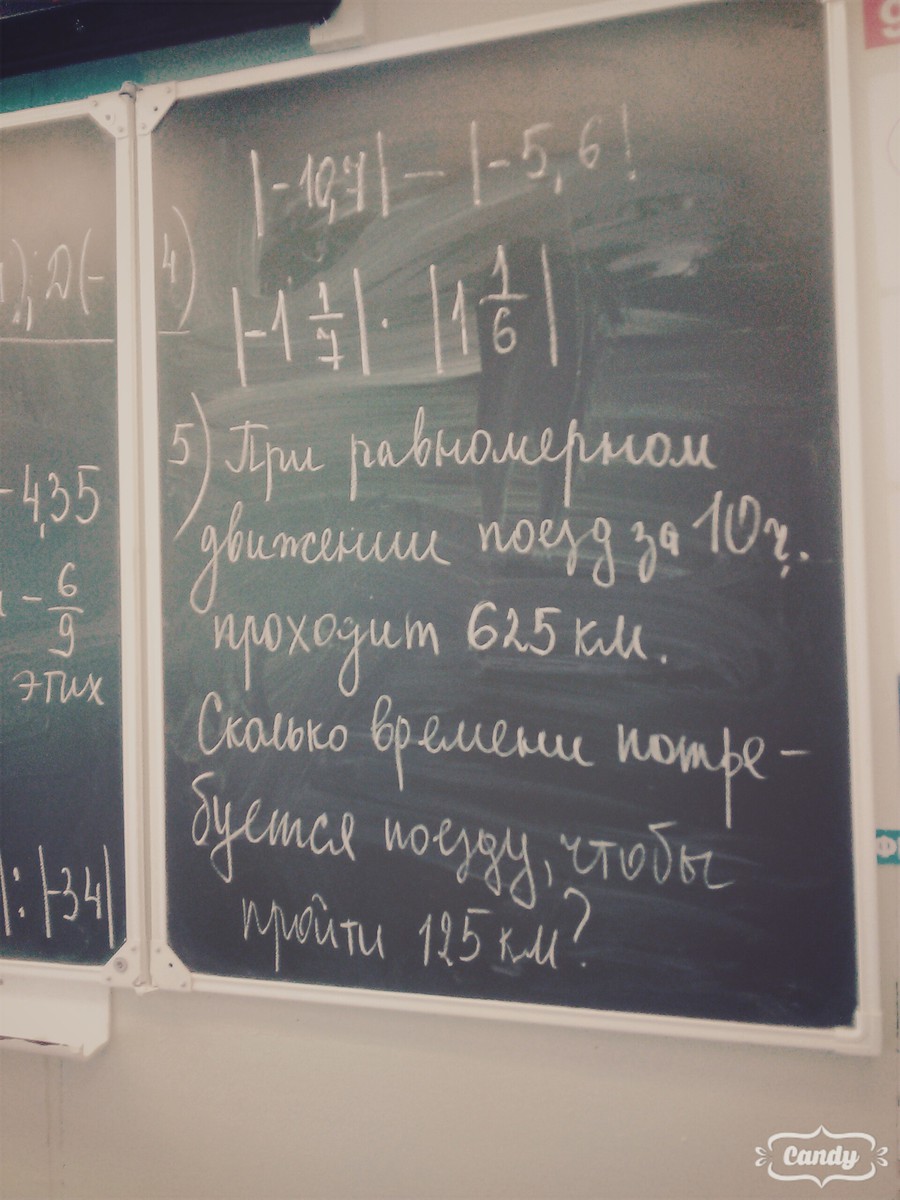 1); D(-
-4,35
- 6/9
этих
|:|-34|
|-10,7| — |-5,6|
4)
|-1 1/7| · |1 1/6|
5) При равномерном
движении поезд за 10 ч.
проходит 625 км.
Сколько времени потре-
буется поезду, чтобы
пройти 125 км?
Candy